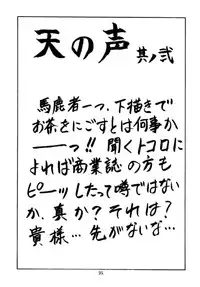 天の声 其ノ弐
馬鹿者ーっ、下描きで
お茶をにごすとは何事か
ーーっ!! 聞くトコロに
よれば商業誌の方も
ピーッしたって噂ではない
か、真か？それは？
貴様…先がないな…